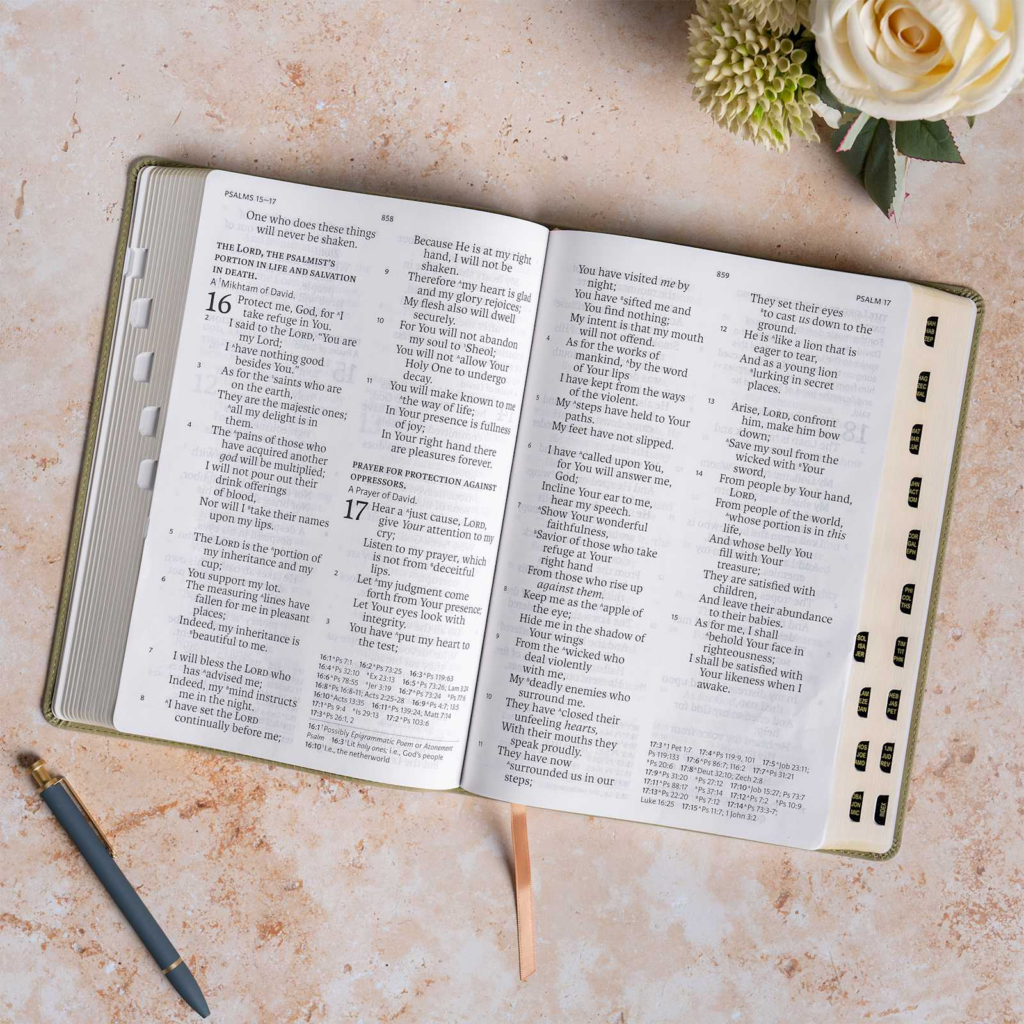 PSALMS 15—17
858
One who does these things
will never be shaken.
THE LORD, THE PSALMIST'S
PORTION IN LIFE AND SALVATION
IN DEATH.
A ¹Mikhtam of David.
16 Protect me, God, for ᴬI
take refuge in You.
2 I said to the LORD, "You are
my Lord;
I ᴬhave nothing good
besides You."
3 As for the ¹saints who are
on the earth,
They are the majestic ones;
ᴬall my delight is in
them.
4 The ᴬpains of those who
have acquired another
god will be multiplied;
I will not pour out their
drink offerings
of blood,
Nor will I ᴮtake their names
upon my lips.
5 The LORD is the ᴬportion of
my inheritance and my
cup;
You support my lot.
6 The measuring ᴬlines have
fallen for me in pleasant
places;
Indeed, my inheritance is
ᴮbeautiful to me.
7 I will bless the LORD who
has ᴬadvised me;
Indeed, my ᴮmind instructs
me in the night.
8 ᴬI have set the LORD
continually before me;
Because He is at my right
hand, I will not be
shaken.
9 Therefore ᴬmy heart is glad
and my glory rejoices;
My flesh also will dwell
securely.
10 For You will not abandon
my soul to ¹Sheol;
You will not ᴬallow Your
Holy One to undergo
decay.
11 You will make known to me
ᴬthe way of life;
In Your presence is fullness
of joy;
In Your right hand there
are pleasures forever.
PRAYER FOR PROTECTION AGAINST
OPPRESSORS.
A Prayer of David.
17 Hear a ᴬjust cause, LORD,
give Your attention to my
cry;
Listen to my prayer, which
is not from ᴮdeceitful
lips.
2 Let ᴬmy judgment come
forth from Your presence;
Let Your eyes look with
integrity.
3 You have ᴬput my heart to
the test;
16:1 ᴬPs 7:1 16:2 ᴬPs 73:25 16:3 ᴬPs 119:63
16:4 ᴬPs 32:10 ᴮEx 23:13 16:5 ᴬPs 73:26; Lam 3:24
16:6 ᴬPs 78:55 ᴮJer 3:19 16:7 ᴬPs 73:24 ᴮPs 77:6
16:8 ᴬPs 16:8-11; Acts 2:25-28 16:9 ᴬPs 4:7; 13:5
16:10 ᴬActs 13:35 16:11 ᴬPs 139:24; Matt 7:14
17:1 ᴬPs 9:4 ᴮIs 29:13 17:2 ᴬPs 103:6
17:3 ᴬPs 26:1, 2
16:1 ¹Possibly Epigrammatic Poem or Atonement
Psalm 16:3 ¹Lit holy ones; i.e., God's people
16:10 ¹I.e., the netherworld
859
PSALM 17
You have visited me by
night;
You have ᴮsifted me and
You find nothing;
My intent is that my mouth
will not offend.
4 As for the works of
mankind, ᴬby the word
of Your lips
I have kept from the ways
of the violent.
5 My ᴬsteps have held to Your
paths.
My feet have not slipped.
6 I have ᴬcalled upon You,
for You will answer me,
God;
Incline Your ear to me,
hear my speech.
7 ᴬShow Your wonderful
faithfulness,
ᴮSavior of those who take
refuge at Your
right hand
From those who rise up
against them.
8 Keep me as the ᴬapple of
the eye;
Hide me in the shadow of
Your wings
9 From the ᴬwicked who
deal violently
with me,
My ᴮdeadly enemies who
surround me.
10 They have ᴬclosed their
unfeeling hearts,
With their mouths they
speak proudly.
11 They have now
ᴬsurrounded us in our
steps;
They set their eyes
ᴮto cast us down to the
ground.
12 He is ᴬlike a lion that is
eager to tear,
And as a young lion
ᴮlurking in secret
places.
13 Arise, LORD, confront
him, make him bow
down;
ᴬSave my soul from the
wicked with ᴮYour
sword,
14 From people by Your hand,
LORD,
From people of the world,
ᴬwhose portion is in this
life,
And whose belly You
fill with Your
treasure;
They are satisfied with
children,
And leave their abundance
to their babies.
15 As for me, I shall
ᴬbehold Your face in
righteousness;
I shall be satisfied with
Your likeness when I
awake.
17:3 ᴮ1 Pet 1:7 17:4 ᴬPs 119:9, 101 17:5 ᴬJob 23:11;
Ps 119:133 17:6 ᴬPs 86:7; 116:2 17:7 ᴬPs 31:21
ᴮPs 20:6 17:8 ᴬDeut 32:10; Zech 2:8
17:9 ᴬPs 31:20 ᴮPs 27:12 17:10 ᴬJob 15:27; Ps 73:7
17:11 ᴬPs 88:17 ᴮPs 37:14 17:12 ᴬPs 7:2 ᴮPs 10:9
17:13 ᴬPs 22:20 ᴮPs 7:12 17:14 ᴬPs 73:3-7;
Luke 16:25 17:15 ᴬPs 11:7; 1 John 3:2
NAH
HAB
ZEP
HAG
ZEC
MAL
MAT
MAR
LUK
JHN
ACT
ROM
COR
GAL
EPH
PHI
COL
THS
SOL
ISA
JER
TIM
TIT
PHN
LAM
EZE
DAN
HEB
JAS
PET
HOS
JOE
AMO
1JN
JUD
REV
OBA
JON
MIC
INDEX